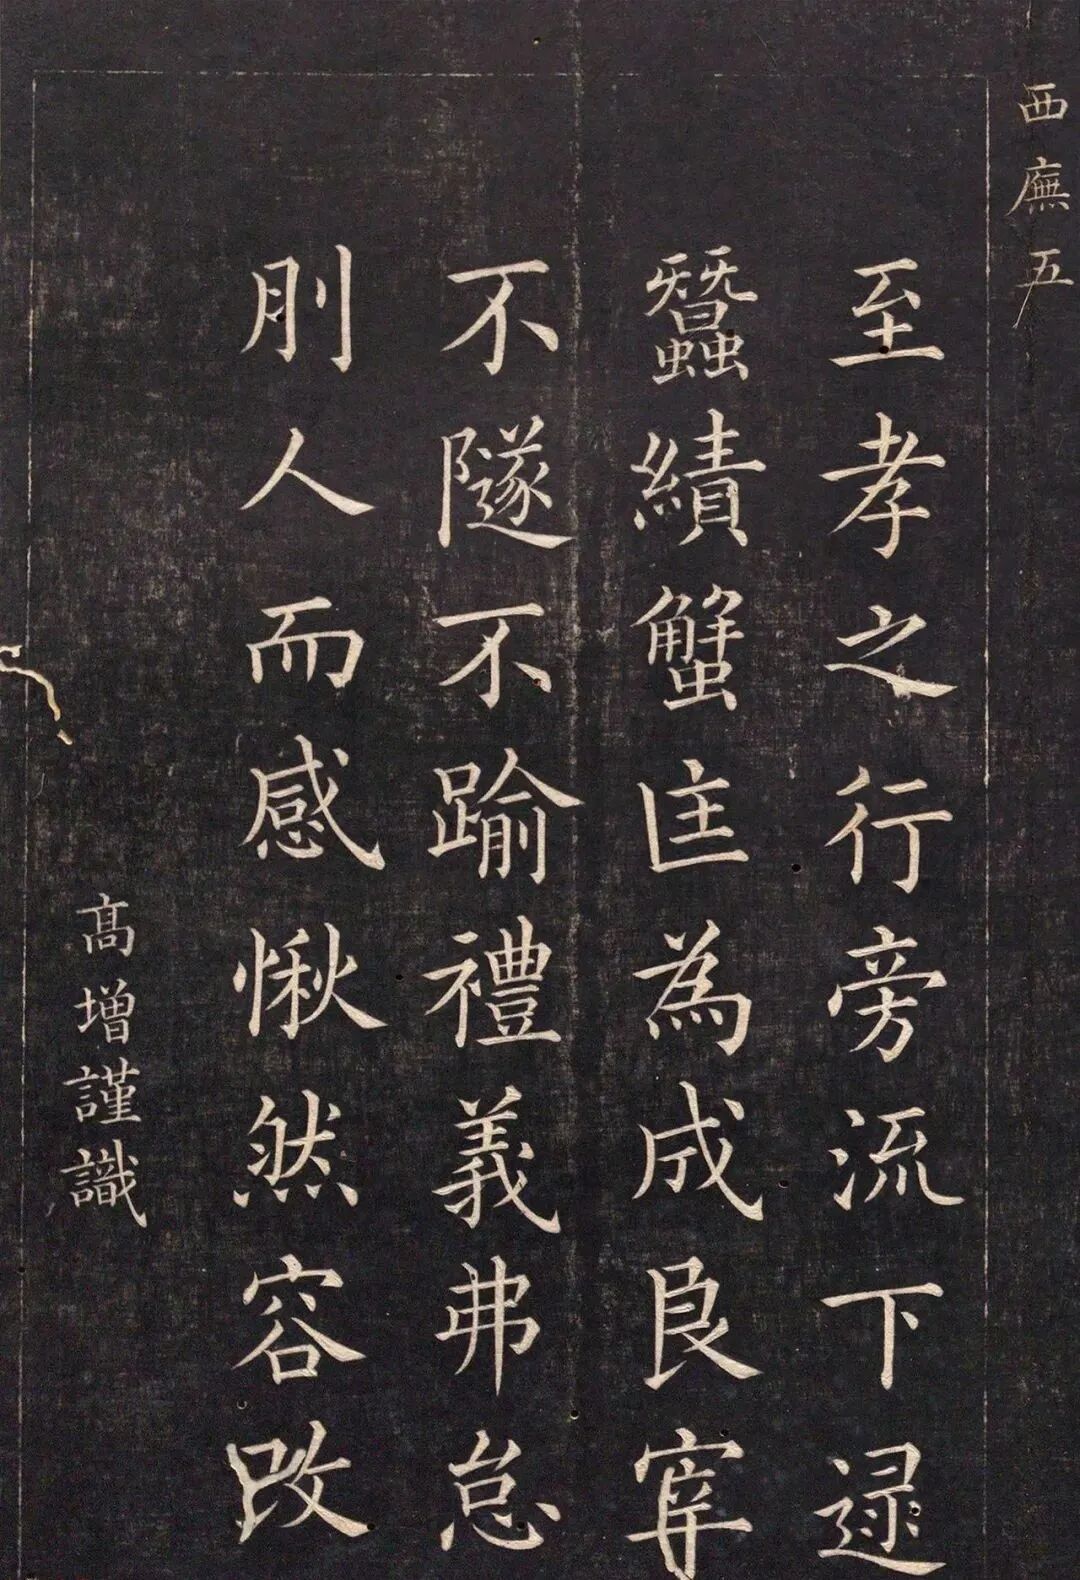 西廡五
至孝之行旁流下逯
蠶績蟹匡為成良宰
不隧不踰禮義弗怠
刖人而感愀然容改
高增謹識